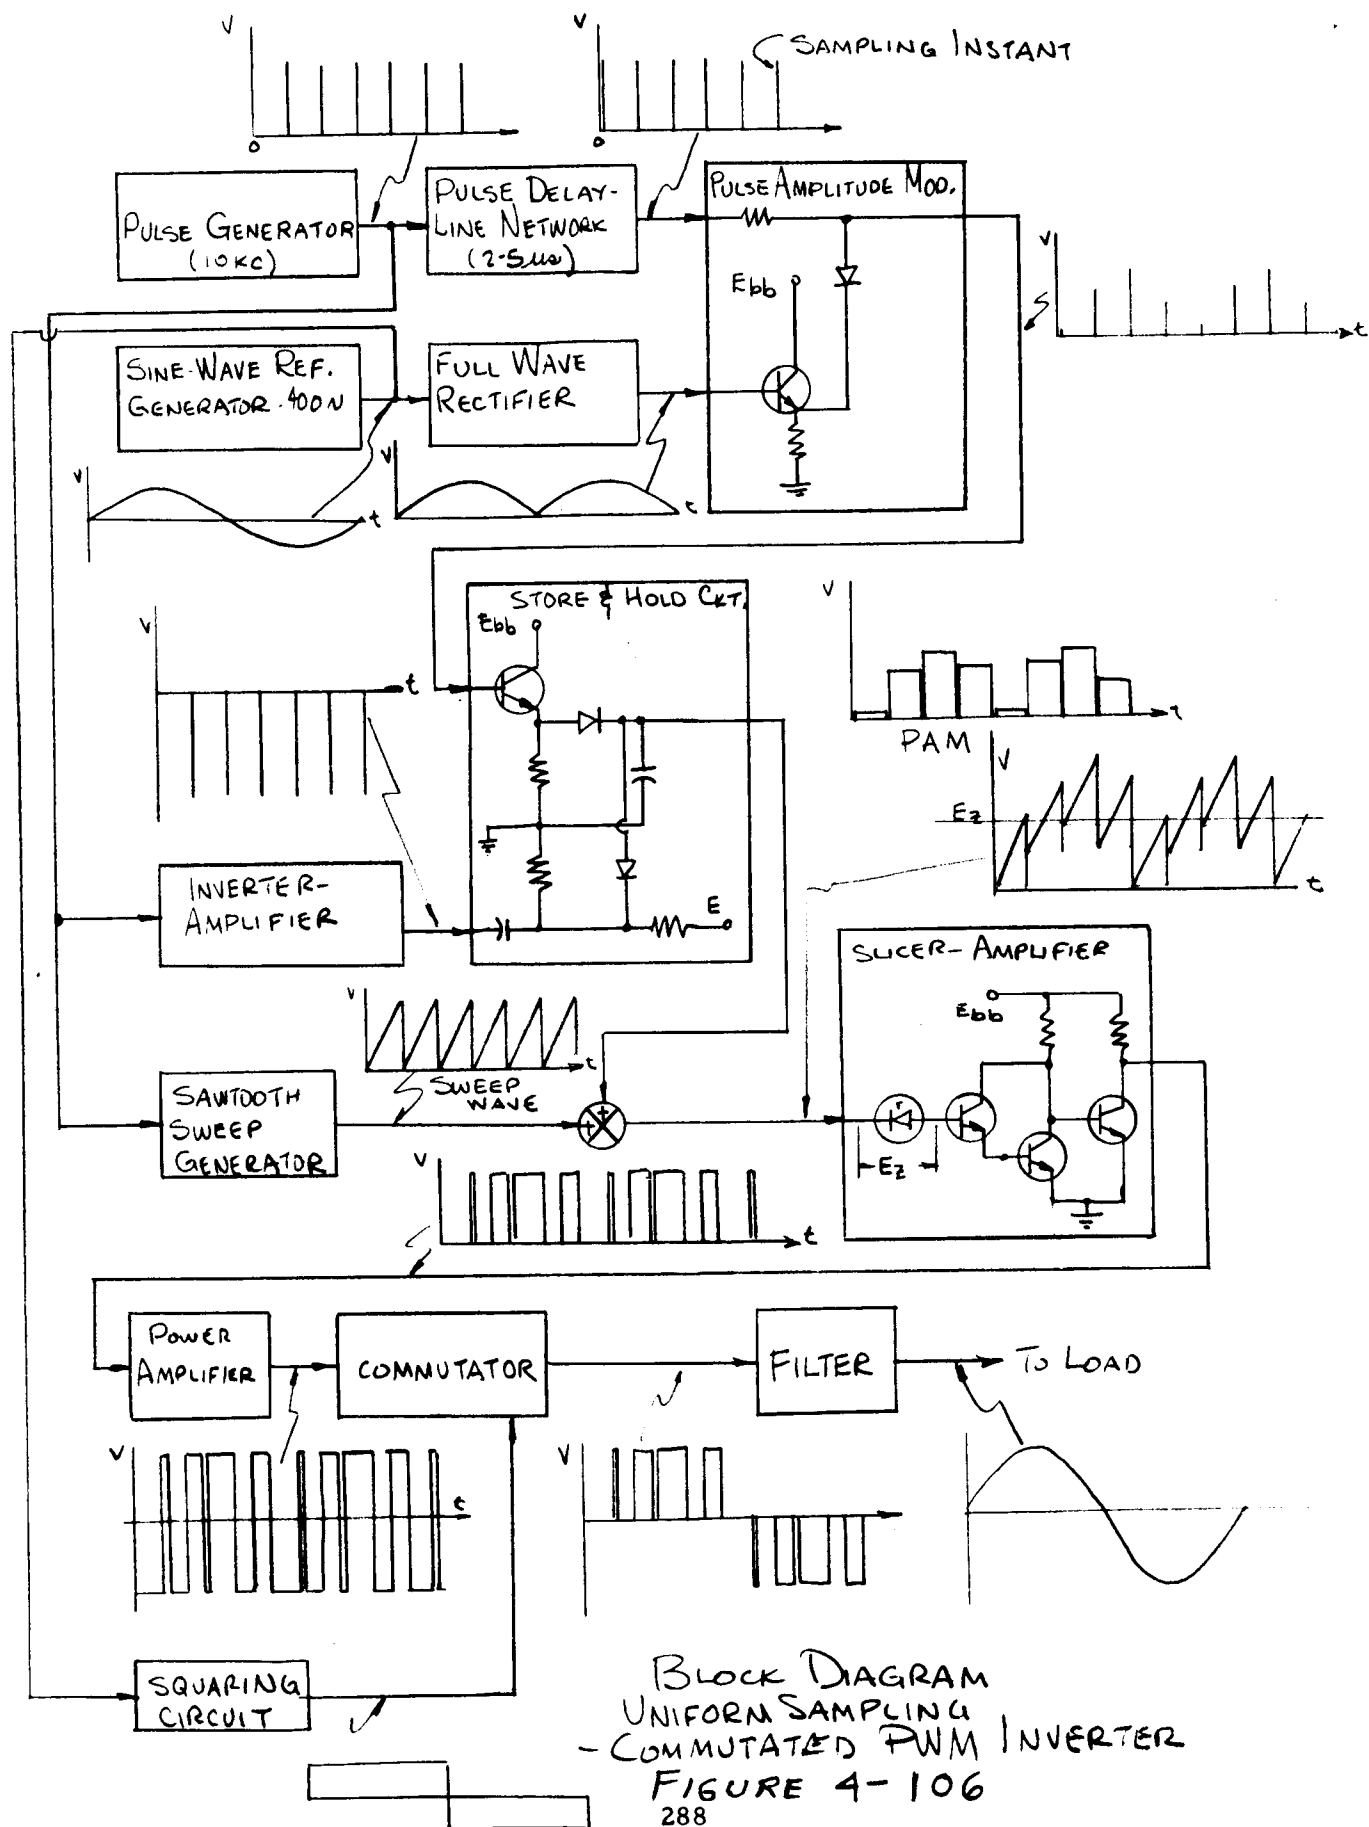 V
V
SAMPLING INSTANT
O
O
PULSE GENERATOR
(10KC)
PULSE DELAY-
LINE NETWORK
(2-5us)
PULSE AMPLITUDE MOD.
Ebb
V
t
SINE-WAVE REF.
GENERATOR-400~
FULL WAVE
RECTIFIER
V
t
V
t
STORE & HOLD CKT.
Ebb
V
t
V
t
PAM
V
Ez
t
INVERTER-
AMPLIFIER
E
SLICER-AMPLIFIER
Ebb
V
t
SWEEP
WAVE
SAWTOOTH
SWEEP
GENERATOR
+
+
Ez
V
t
POWER
AMPLIFIER
COMMUTATOR
FILTER
TO LOAD
V
t
V
SQUARING
CIRCUIT
BLOCK DIAGRAM
UNIFORM SAMPLING
-COMMUTATED PWM INVERTER
FIGURE 4-106
288